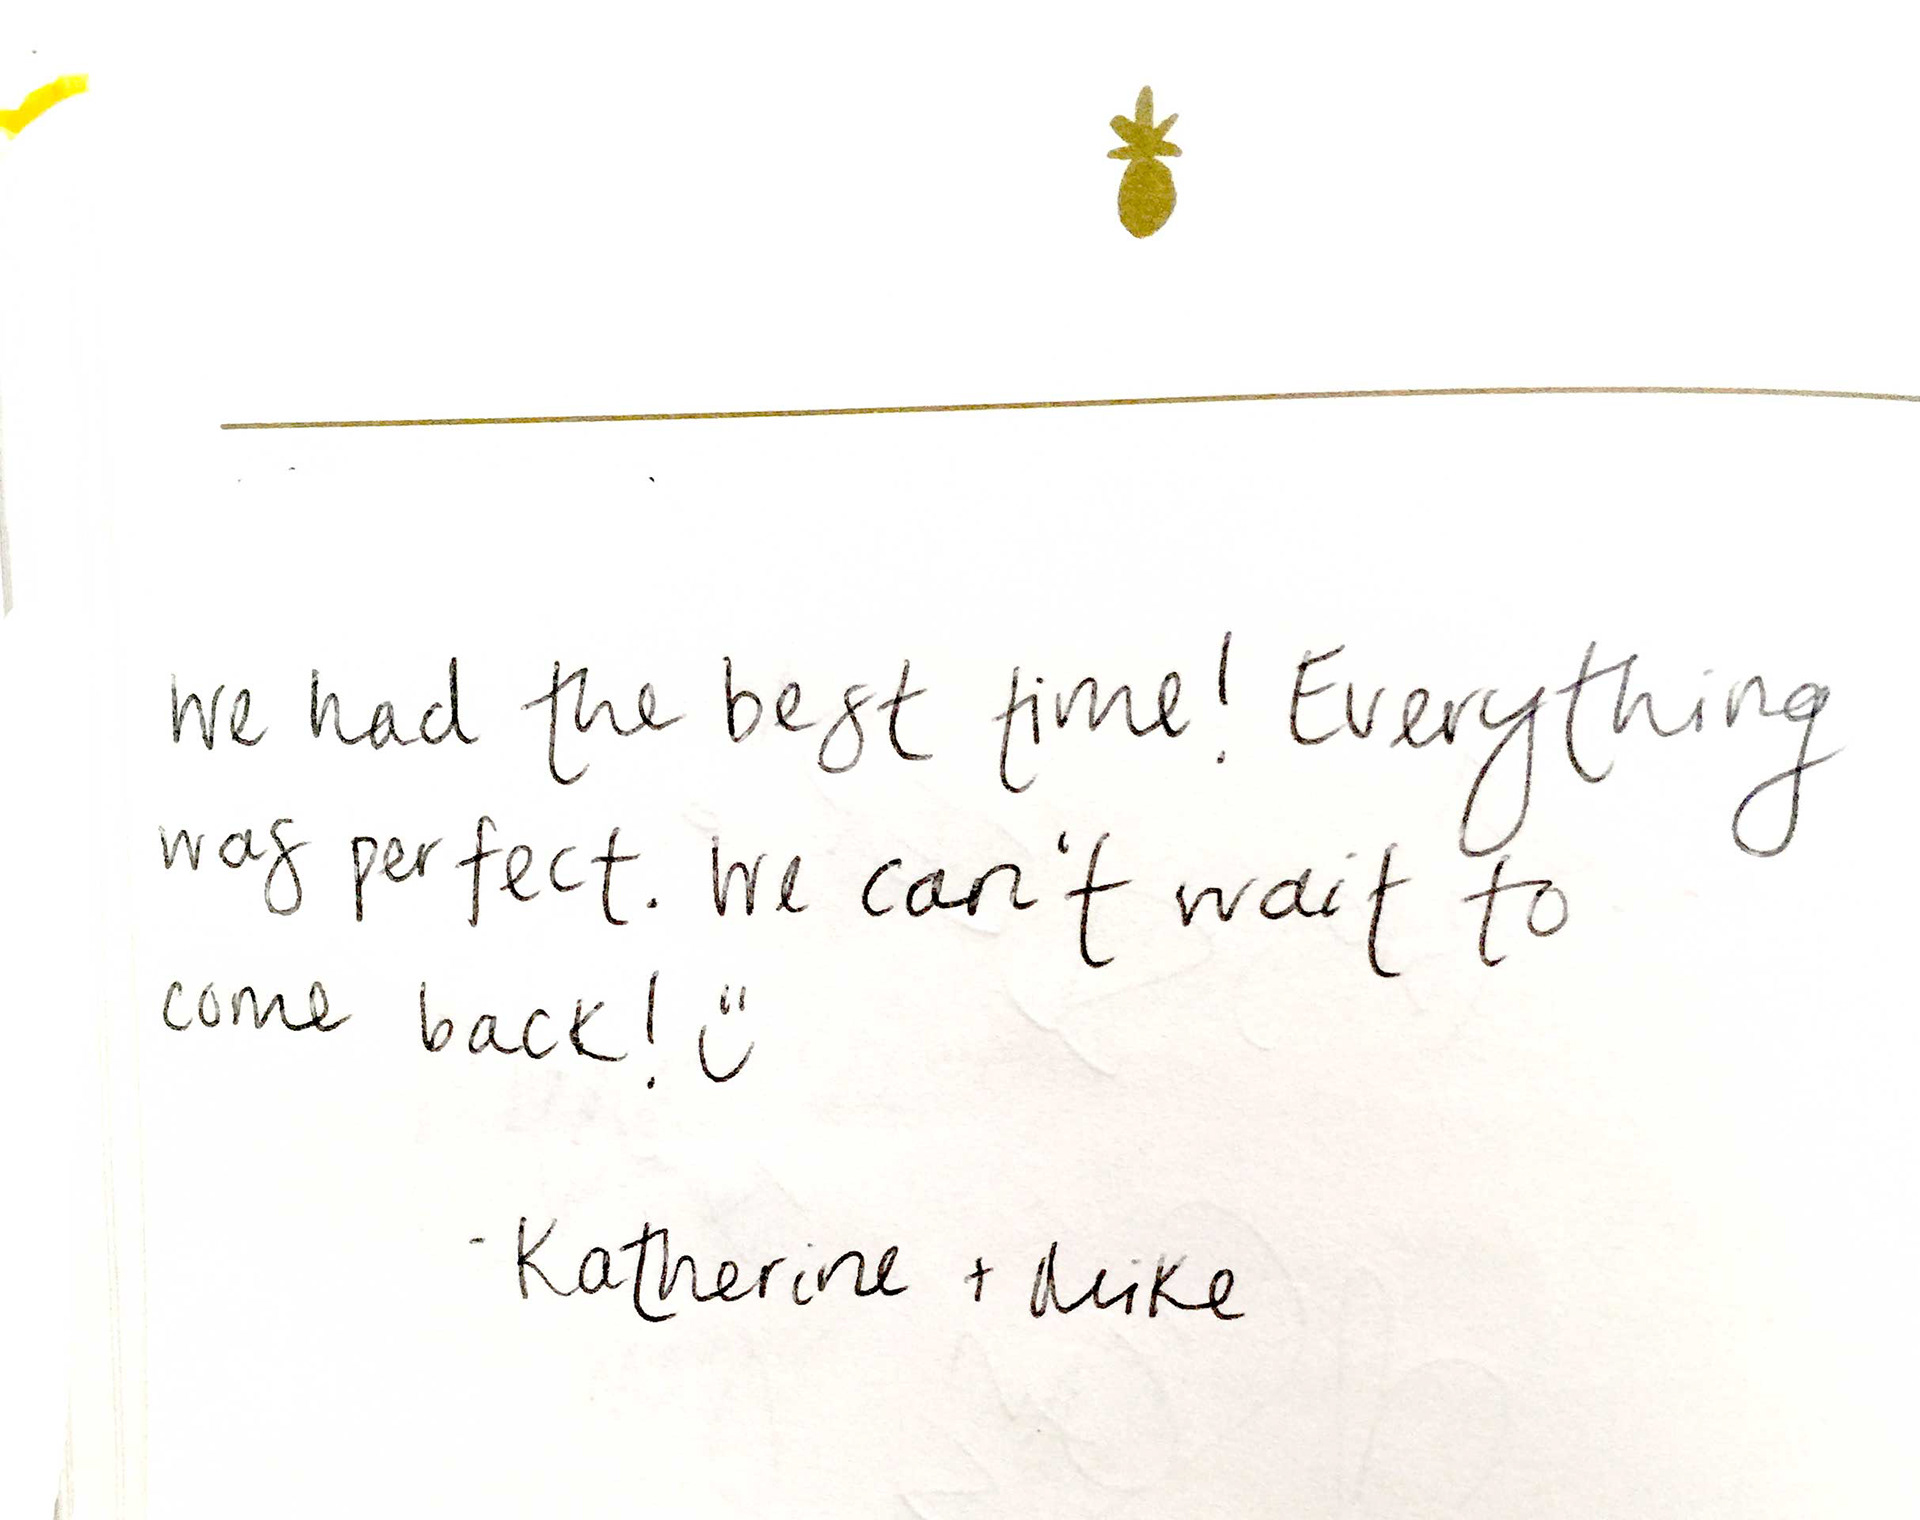 We had the best time! Everything
was perfect. We can't wait to
come back! ü
- Katherine + Mike